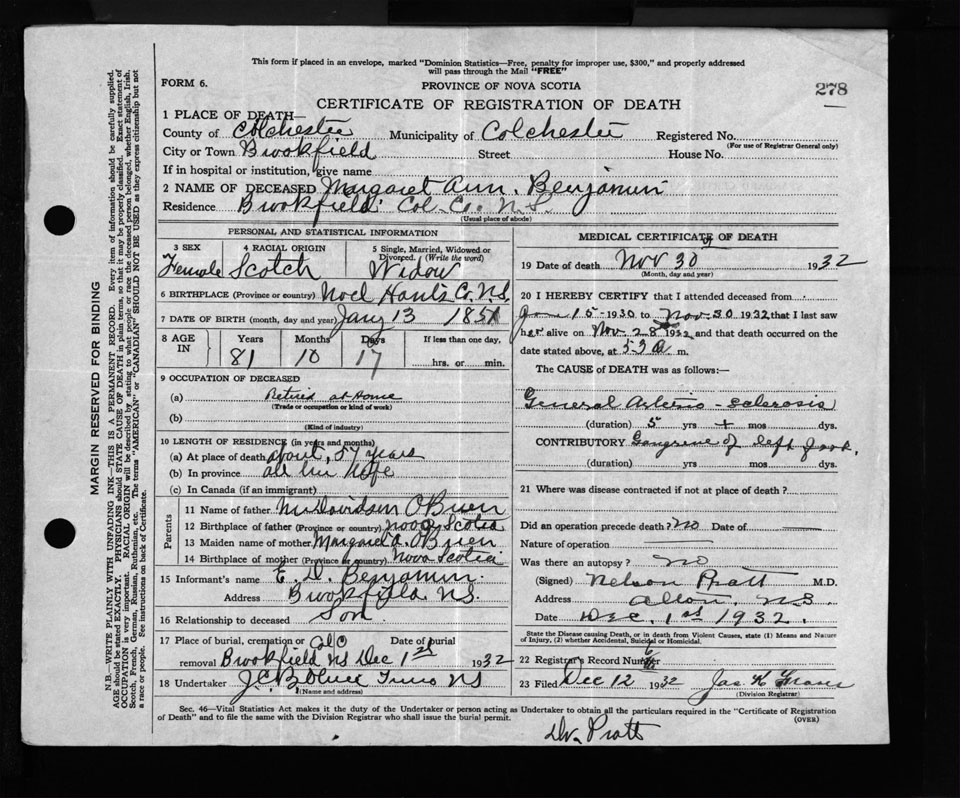 This form if placed in an envelope, marked "Dominion Statistics—Free, penalty for improper use, $300," and properly addressed
will pass through the Mail "FREE"
FORM 6.
PROVINCE OF NOVA SCOTIA
278
CERTIFICATE OF REGISTRATION OF DEATH
1 PLACE OF DEATH—
County of Colchester Municipality of Colchester Registered No.
(For use of Registrar General only)
City or Town Brookfield Street House No.
If in hospital or institution, give name
2 NAME OF DECEASED Margaret Ann. Benjamin
Residence Brookfield Col. Co. N.S.
(Usual place of abode)
PERSONAL AND STATISTICAL INFORMATION
3 SEX 4 RACIAL ORIGIN 5 Single, Married, Widowed or
Divorced. (Write the word)
Female Scotch Widow
6 BIRTHPLACE (Province or country) Noel Hants Co. N.S.
7 DATE OF BIRTH (month, day and year) Jany 13 1851
8 AGE IN Years Months Days If less than one day,
81 10 17 hrs. or min.
9 OCCUPATION OF DECEASED
(a) Retired at Home
(Trade or occupation or kind of work)
(b)
(Kind of industry)
10 LENGTH OF RESIDENCE (in years and months)
(a) At place of death about 57 years
(b) In province all her life
(c) In Canada (if an immigrant)
Parents
11 Name of father Davidson OBrien
12 Birthplace of father (Province or country) Nova Scotia
13 Maiden name of mother Margaret A. OBrien
14 Birthplace of mother (Province or country) Nova Scotia
15 Informant's name E. D. Benjamin.
Address Brookfield N.S.
16 Relationship to deceased Son
17 Place of burial, cremation or Col Co Date of burial
removal Brookfield NS Dec 1st 1932
18 Undertaker J.C.B. Truro NS
(Name and address)
MEDICAL CERTIFICATE OF DEATH
19 Date of death Nov 30 1932
(Month, day and year)
20 I HEREBY CERTIFY that I attended deceased from
15-1930 to Nov-30 1932 that I last saw
her alive on Nov-28 1932 and that death occurred on the
date stated above, at 530 a m.
The CAUSE of DEATH was as follows:—
General Arterio-sclerosis
(duration) 5 yrs + mos dys.
CONTRIBUTORY Gangrene of left foot.
(duration) yrs mos dys.
21 Where was disease contracted if not at place of death?
Did an operation precede death? No Date of
Nature of operation
Was there an autopsy? no
(Signed) Nelson Pratt M.D.
Address N.S.
Date Dec. 1st 1932.
State the Disease causing Death, or in death from Violent Causes, state (1) Means and Nature
of Injury, (2) whether Accidental, Suicidal or Homicidal.
22 Registrar's Record Number
23 Filed Dec 12 1932 Jas K Fraser
(Division Registrar)
Sec. 46—Vital Statistics Act makes it the duty of the Undertaker or person acting as Undertaker to obtain all the particulars required in the "Certificate of Registration
of Death" and to file the same with the Division Registrar who shall issue the burial permit.
(OVER)
Dr. Pratt
MARGIN RESERVED FOR BINDING
N.B.—WRITE PLAINLY WITH UNFADING INK—THIS IS A PERMANENT RECORD. Every item of information should be carefully supplied.
AGE should be stated EXACTLY. PHYSICIANS should STATE CAUSE OF DEATH in plain terms, so that it may be properly classified. Exact statement of
OCCUPATION is very important. RACIAL ORIGIN will be described by stating to what people or race the deceased person belonged, whether English, Irish,
Scotch, French, German, Russian, Ruthenian, etc. The terms "AMERICAN" or "CANADIAN" SHOULD NOT BE USED as they express citizenship but not
a race or people. See instructions on back of Certificate.